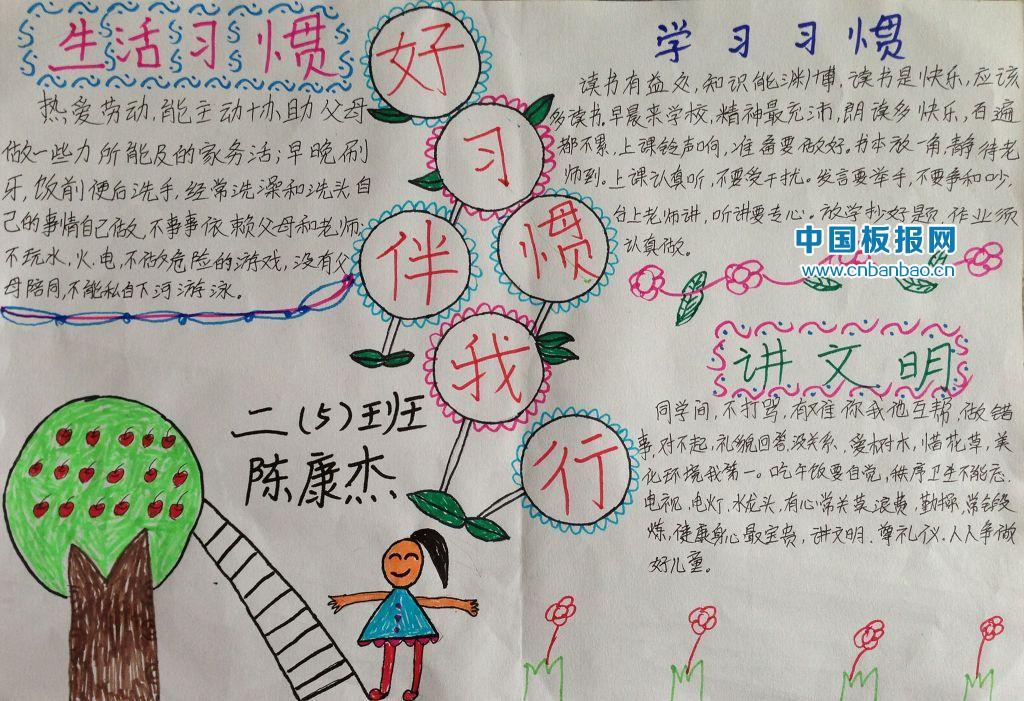 生活习惯
热爱劳动,能主动协助父母
做一些力所能及的家务活;早晚刷
牙,饭前便后洗手,经常洗澡和洗头自
己的事情自己做,不事事依赖父母和老师;
不玩水,火,电,不做危险的游戏,没有父
母陪同,不能私自下河游泳。
好
习
惯
伴
我
行
二(5)班
陈康杰
学习习惯
读书有益处,知识能渊博,读书是快乐,应该
多读书,早晨来学校,精神最充沛,朗读多快乐,百遍
都不累,上课铃声响,准备要做好。书本放一角,静待老
师到。上课认真听,不要受干扰。发言要举手,不要争和吵,
台上老师讲,听讲要专心。放学抄好题,作业须
认真做。
中国板报网
www.cnbanbao.cn
讲文明
同学间,不打骂,有难你我他互帮,做错
事,对不起,礼貌回答没关系,爱树木,惜花草,美
化环境我第一。吃午饭要自觉,秩序卫生不能忘,
电视,电灯,水龙头,有心常关莫浪费,勤操,常锻
炼,健康身心最宝贵,讲文明.尊礼仪.人人争做
好儿童。